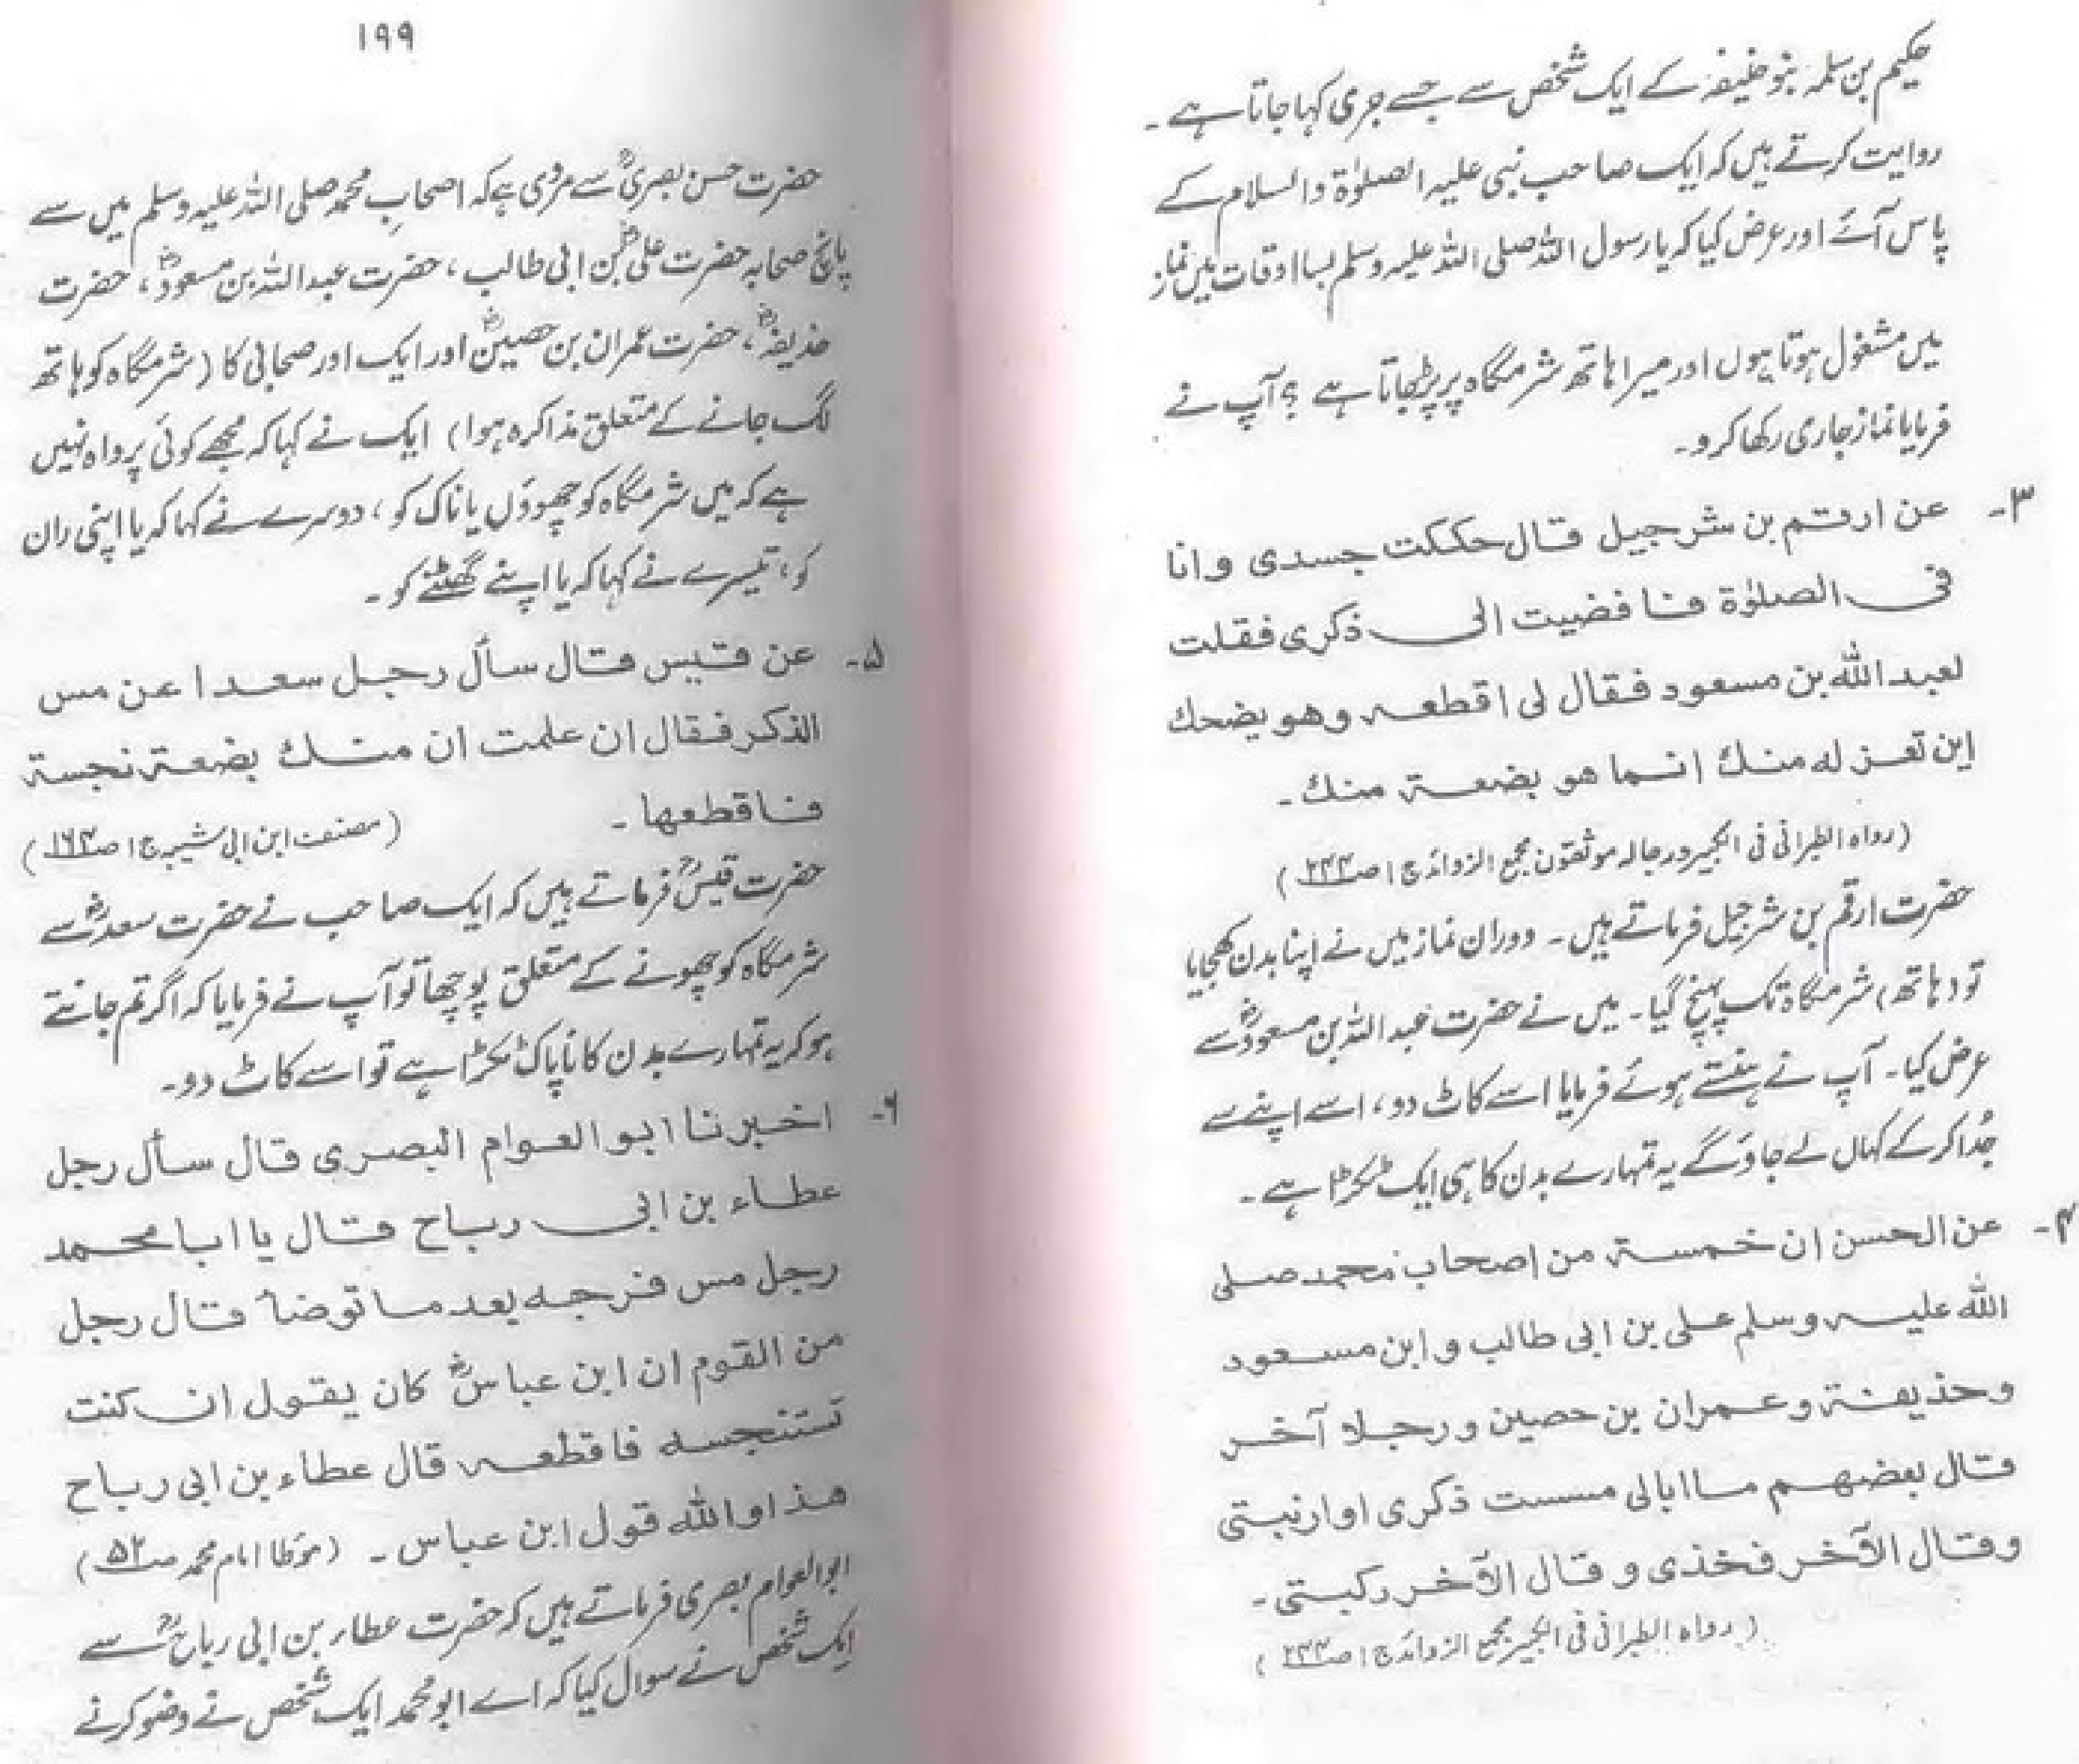 حکیم بن سلمہ بنو حنیفہ کے ایک شخص سے جسے جری کہا جاتا ہے ۔
روایت کرتے ہیں کہ ایک صاحب نبی علیہ الصلوٰۃ والسلام کے
پاس آئے اور عرض کیا کہ یا رسول اللہ صلی اللہ علیہ وسلم بسا اوقات میں نماز
میں مشغول ہوتا ہوں اور میرا ہاتھ شرمگاہ پر پڑجاتا ہے ؟ آپ نے
فرمایا نماز جاری رکھا کرو ۔
۳۔ عن ارقم بن شرجیل قال حککت جسدی وانا
فی الصلوٰۃ فنا فضیت الی ذکری فقلت
لعبد اللہ بن مسعود فقال لی اقطعہ وھو یضحک
این تعزلہ منک انما ھو بضعۃ منک ۔
(رواہ الطبرانی فی الکبیر ورجالہ موثقون مجمع الزوائد ج ۱ ص ۲۴۴)
حضرت ارقم بن شرجیل فرماتے ہیں ۔ دوران نماز میں نے اپنا بدن کھجایا
تو (ہاتھ) شرمگاہ تک پہنچ گیا ۔ میں نے حضرت عبد اللہ بن مسعودؓ سے
عرض کیا ۔ آپ نے ہنستے ہوئے فرمایا اسے کاٹ دو ، اسے اپنے سے
جُدا کر کے کہاں لے جاؤ گے یہ تمہارے بدن کا ہی ایک ٹکڑا ہے ۔
۴۔ عن الحسن ان خمسۃ من اصحاب محمد صلی
اللہ علیہ وسلم علی بن ابی طالب وابن مسعود
وحذیفۃ وعمران بن حصین ورجلا آخر
قال بعضھم ما ابالی مسست ذکری او ارنبتی
وقال الآخر فخذی وقال الآخر رکبتی ۔
(رواہ الطبرانی فی الکبیر مجمع الزوائد ج ۱ ص ۲۴۴)
۱۹۹
حضرت حسن بصریؒ سے مروی ہے کہ اصحابِ محمد صلی اللہ علیہ وسلم میں سے
پانچ صحابہ حضرت علیؓ بن ابی طالب ، حضرت عبد اللہ بن مسعودؓ ، حضرت
حذیفہؓ ، حضرت عمران بن حصینؓ اور ایک اور صحابی کا (شرمگاہ کو ہاتھ
لگ جانے کے متعلق مذاکرہ ہوا) ایک نے کہا کہ مجھے کوئی پرواہ نہیں
ہے کہ میں شرمگاہ کو چھوؤں یا ناک کو ، دوسرے نے کہا کہ یا اپنی ران
کو ، تیسرے نے کہا کہ یا اپنے گھٹنے کو ۔
۵۔ عن قیس قال سأل رجل سعدا عن مس
الذکر فقال ان علمت ان منک بضعۃ نجسۃ
فاقطعھا ۔ (مصنف ابن ابی شیبہ ج ۱ ص ۱۶۴)
حضرت قیسؒ فرماتے ہیں کہ ایک صاحب نے حضرت سعدؓ سے
شرمگاہ کو چھونے کے متعلق پوچھا تو آپ نے فرمایا کہ اگر تم جانتے
ہو کہ یہ تمہارے بدن کا ناپاک ٹکڑا ہے تو اسے کاٹ دو ۔
۶۔ اخبرنا ابو العوام البصری قال سأل رجل
عطاء بن ابی رباح قال یا ابا محمد
رجل مس فرجہ بعد ما توضأ قال رجل
من القوم ان ابن عباسؓ کان یقول ان کنت
تستنجسہ فاقطعہ قال عطاء بن ابی رباح
ھذا واللہ قول ابن عباس ۔ (مؤطا امام محمد ص ۵۲)
ابو العوام بصری فرماتے ہیں کہ حضرت عطاء بن ابی رباحؒ سے
ایک شخص نے سوال کیا کہ اے ابو محمد ایک شخص نے وضو کرنے